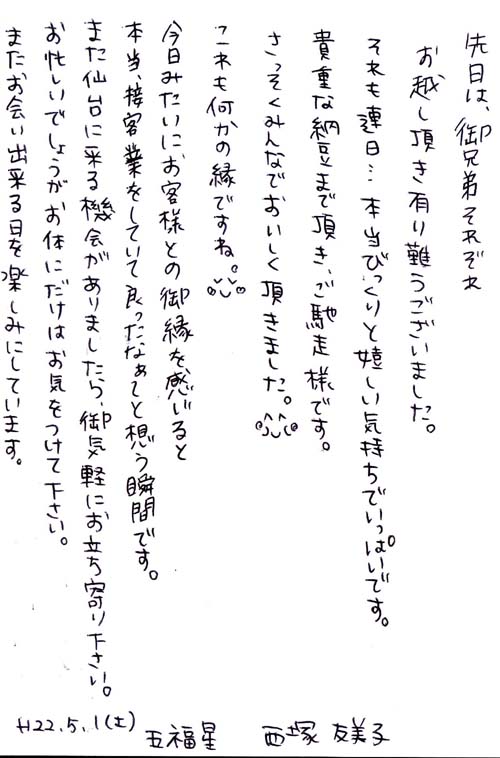 先日は、御兄弟それぞれ
お越し頂き有り難うございました。
それも連日… 本当びっくりと嬉しい気持ちでいっぱいです。
貴重な納豆まで頂き、ご馳走様です。
さっそくみんなでおいしく頂きました。
これも何かの縁ですね。
今日みたいにお客様との御縁を感じると
本当、接客業をしていて良ったなぁ〜と想う瞬間です。
また仙台に来る機会がありましたら、御気軽にお立ち寄り下さい。
お忙しいでしょうがお体にだけはお気をつけて下さい。
またお会い出来る日を楽しみにしています。
H22.5.1(土) 五福星 西塚 友美子